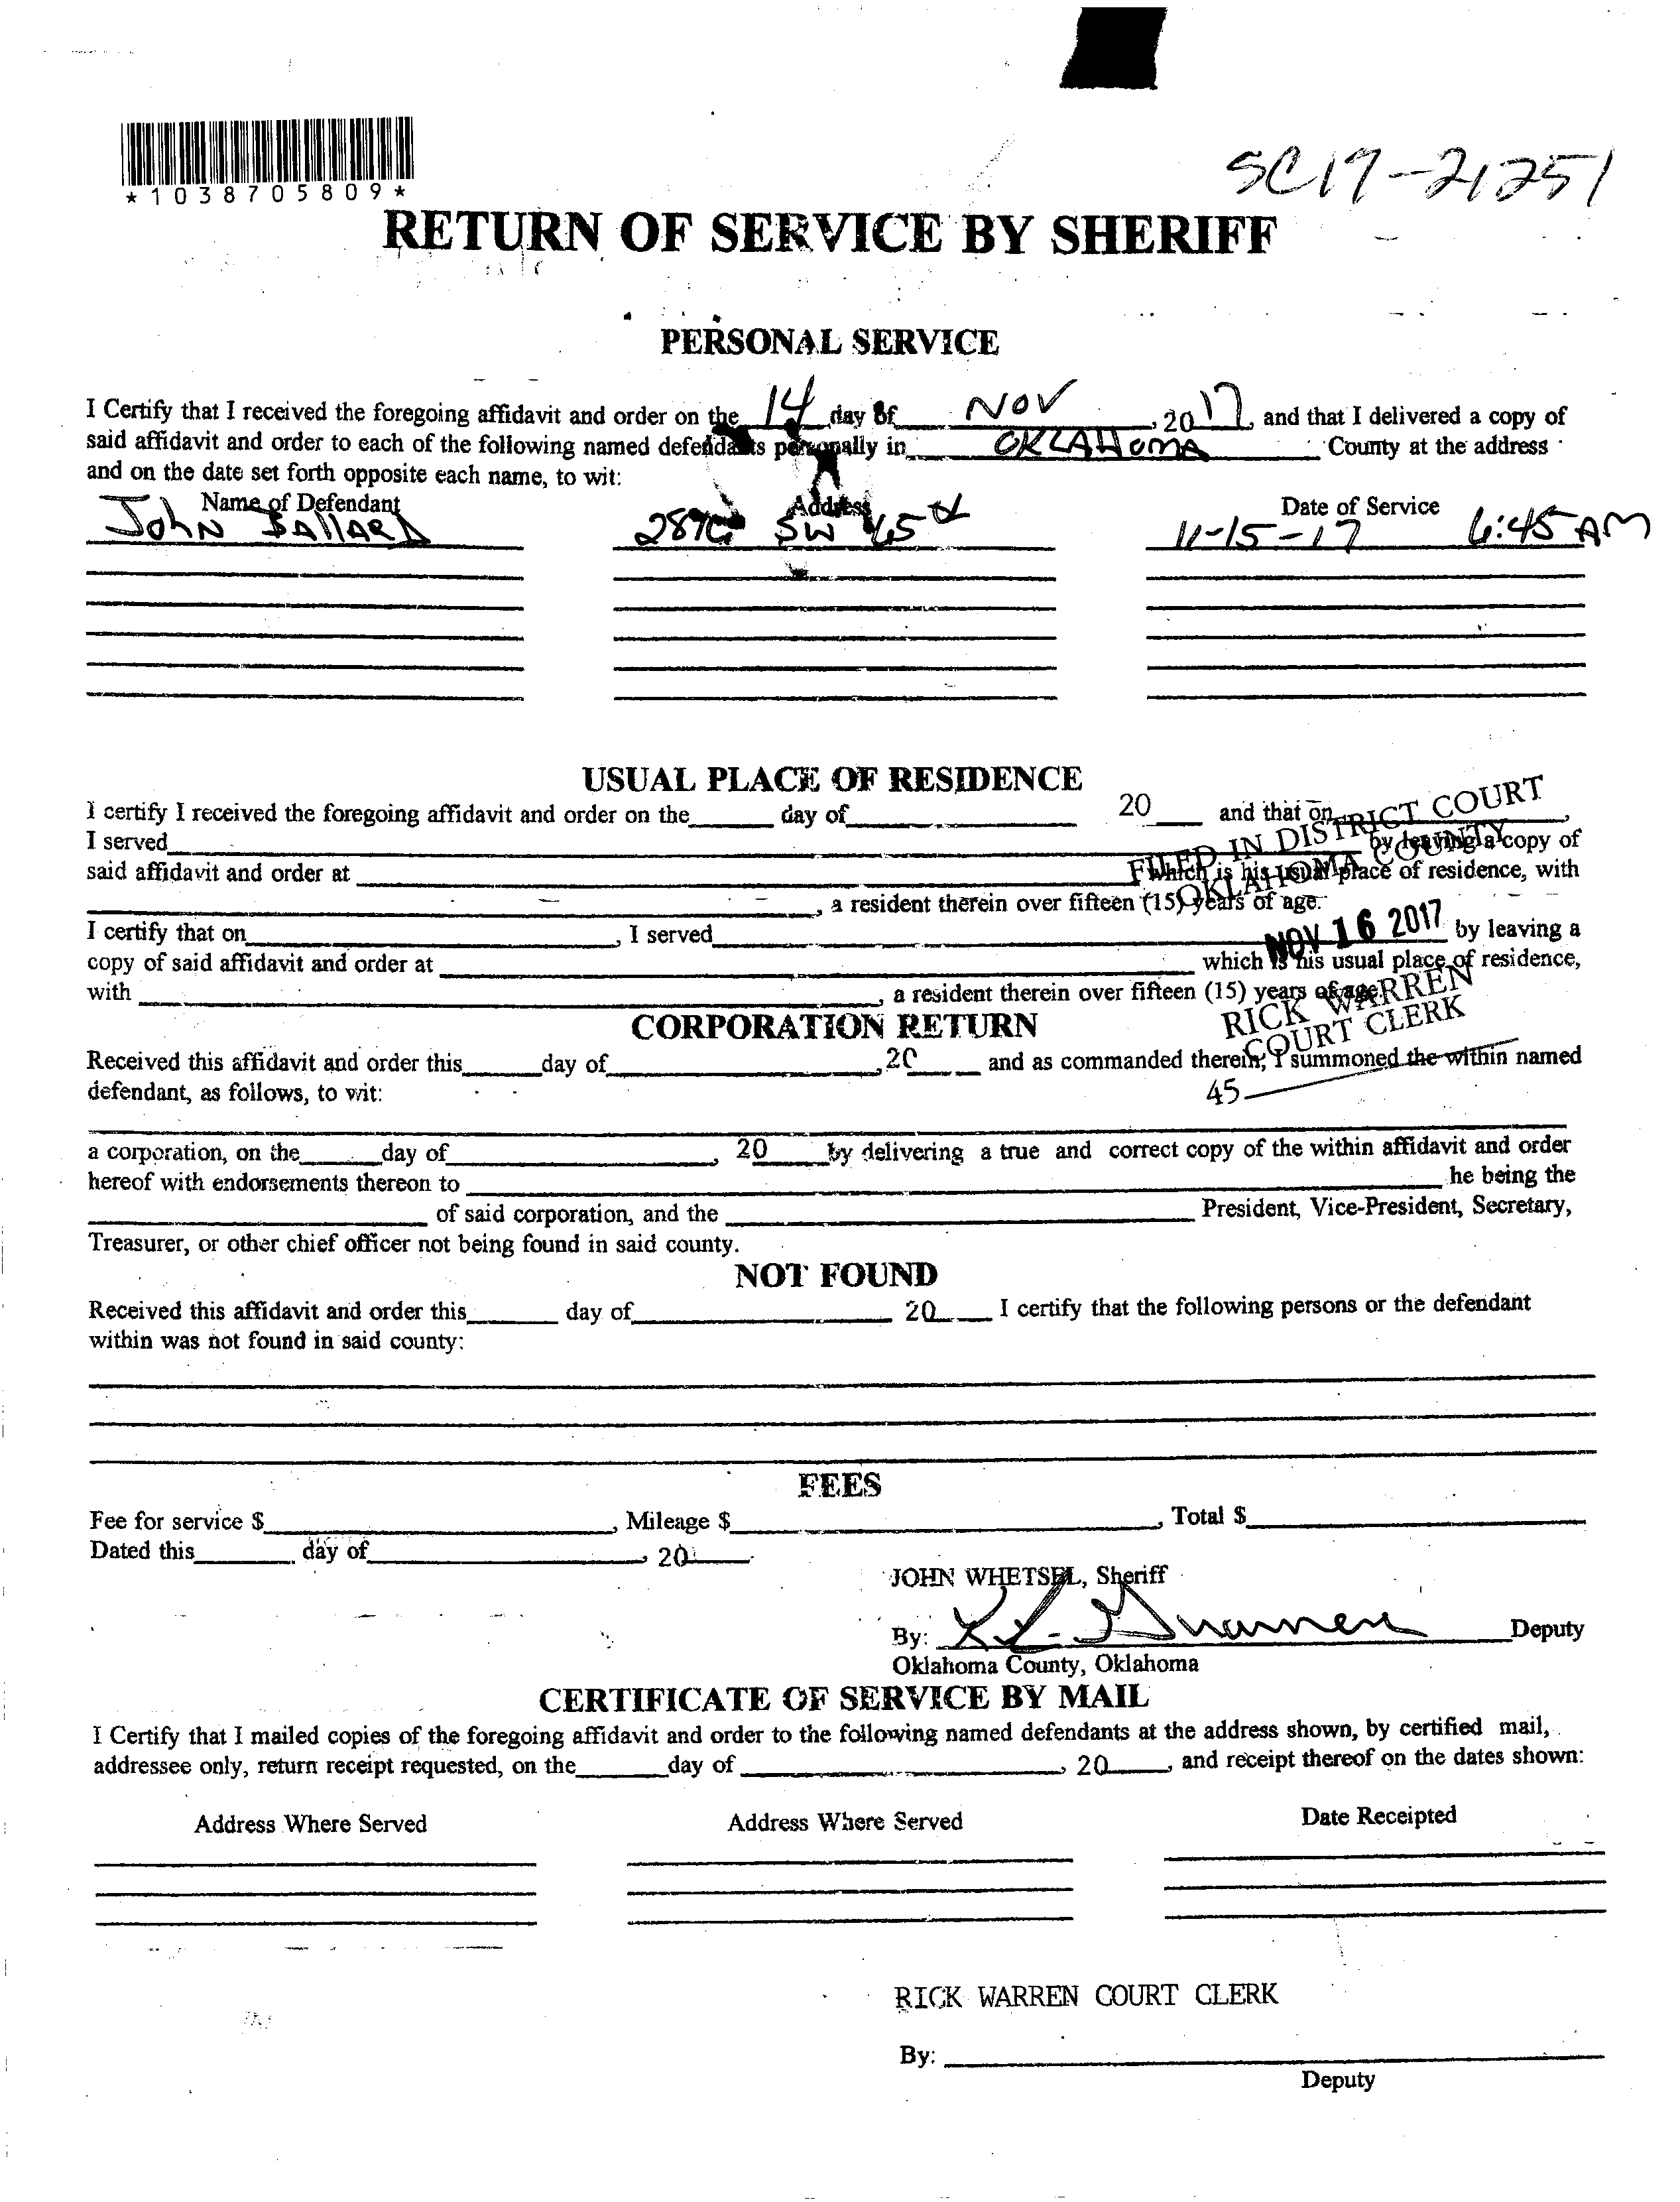 *1038705809*
SC17-21251
RETURN OF SERVICE BY SHERIFF
PERSONAL SERVICE
I Certify that I received the foregoing affidavit and order on the 14 day of NOV, 2017, and that I delivered a copy of
said affidavit and order to each of the following named defendants personally in OKLAHOMA County at the address
and on the date set forth opposite each name, to wit:
Name of Defendant Address Date of Service
John Ballard SW 11-15-17 6:45 AM
USUAL PLACE OF RESIDENCE
I certify I received the foregoing affidavit and order on the ____ day of ____ 20 ____ and that on ____,
I served ____ by leaving a copy of
said affidavit and order at ____ which is his usual place of residence, with
____, a resident therein over fifteen (15) years of age.
FILED IN DISTRICT COURT
OKLAHOMA COUNTY
NOV 16 2017
RICK WARREN
COURT CLERK
45
I certify that on ____, I served ____ by leaving a
copy of said affidavit and order at ____ which is his usual place of residence,
with ____, a resident therein over fifteen (15) years of age.
CORPORATION RETURN
Received this affidavit and order this ____ day of ____, 20 ____ and as commanded therein, I summoned the within named
defendant, as follows, to wit:
a corporation, on the ____ day of ____, 20 ____ by delivering a true and correct copy of the within affidavit and order
hereof with endorsements thereon to ____ he being the
____ of said corporation, and the ____ President, Vice-President, Secretary,
Treasurer, or other chief officer not being found in said county.
NOT FOUND
Received this affidavit and order this ____ day of ____ 20 ____ I certify that the following persons or the defendant
within was not found in said county:
FEES
Fee for service $ ____, Mileage $ ____, Total $ ____
Dated this ____ day of ____, 20 ____.
JOHN WHETSEL, Sheriff
By: ____ Deputy
Oklahoma County, Oklahoma
CERTIFICATE OF SERVICE BY MAIL
I Certify that I mailed copies of the foregoing affidavit and order to the following named defendants at the address shown, by certified mail,
addressee only, return receipt requested, on the ____ day of ____, 20 ____, and receipt thereof on the dates shown:
Address Where Served Address Where Served Date Receipted
RICK WARREN COURT CLERK
By: ____
Deputy